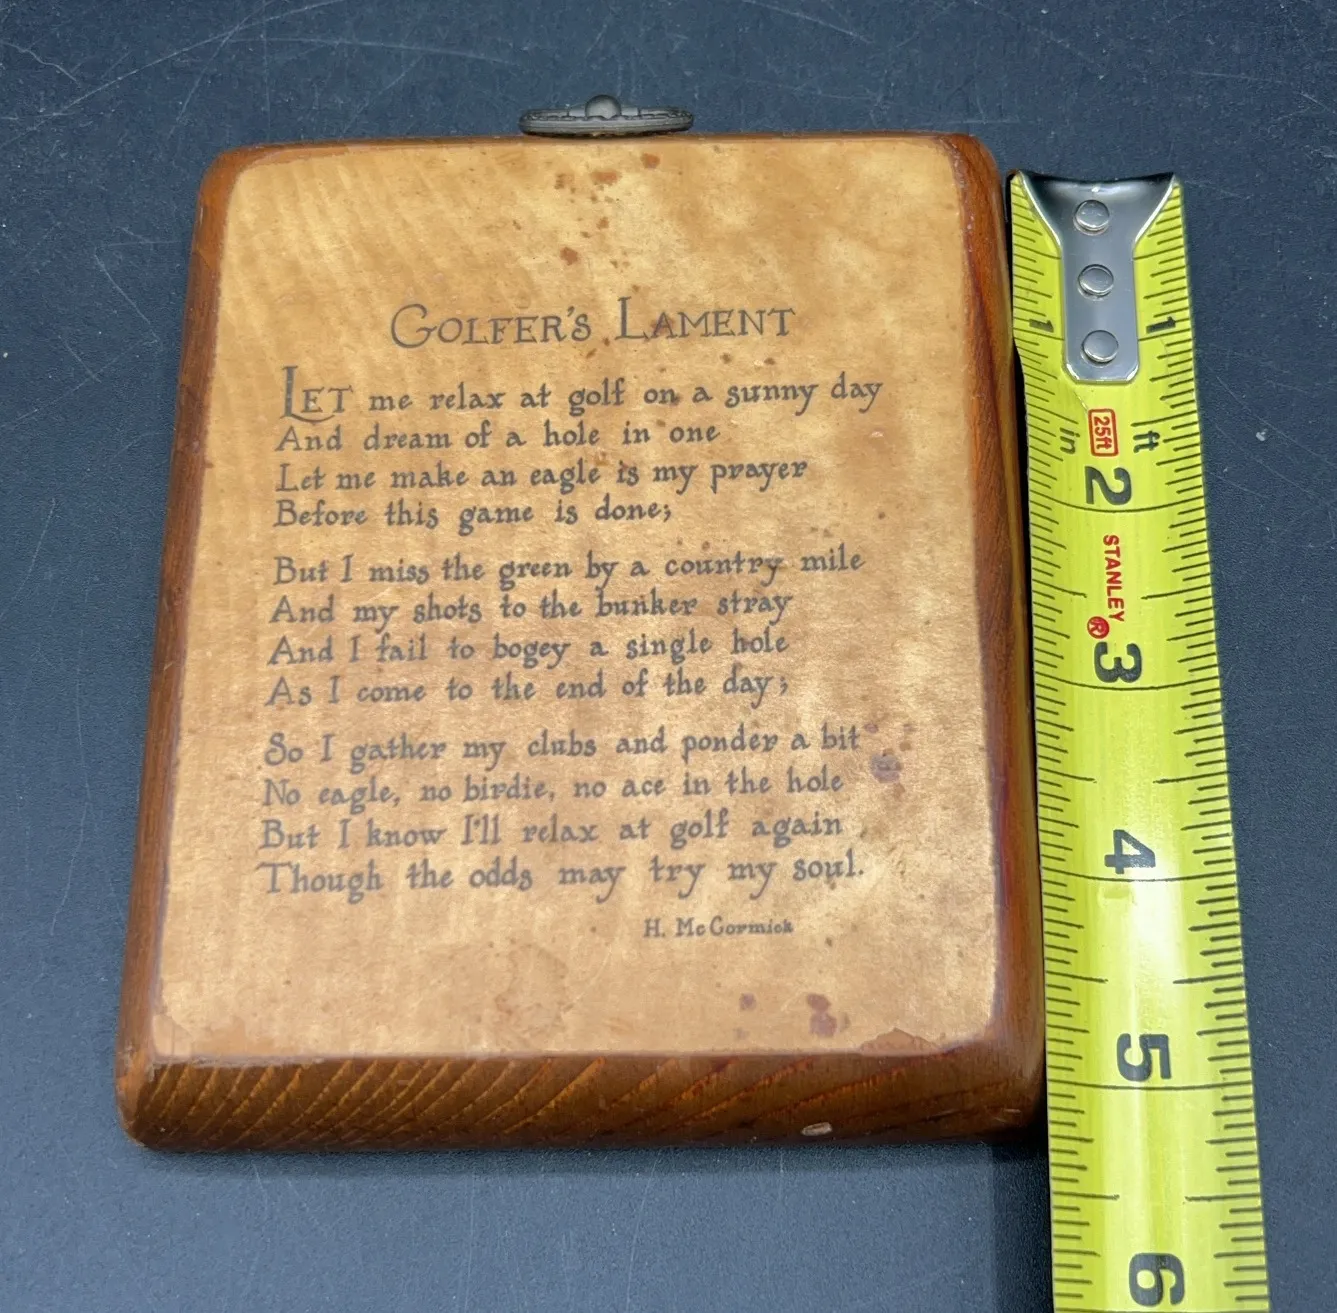 GOLFER'S LAMENT
LET me relax at golf on a sunny day
And dream of a hole in one
Let me make an eagle is my prayer
Before this game is done;
But I miss the green by a country mile
And my shots to the bunker stray
And I fail to bogey a single hole
As I come to the end of the day;
So I gather my clubs and ponder a bit
No eagle, no birdie, no ace in the hole
But I know I'll relax at golf again
Though the odds may try my soul.
H. McCormick
1 1
in 25ft ft
2
STANLEY®
3
4
5
6